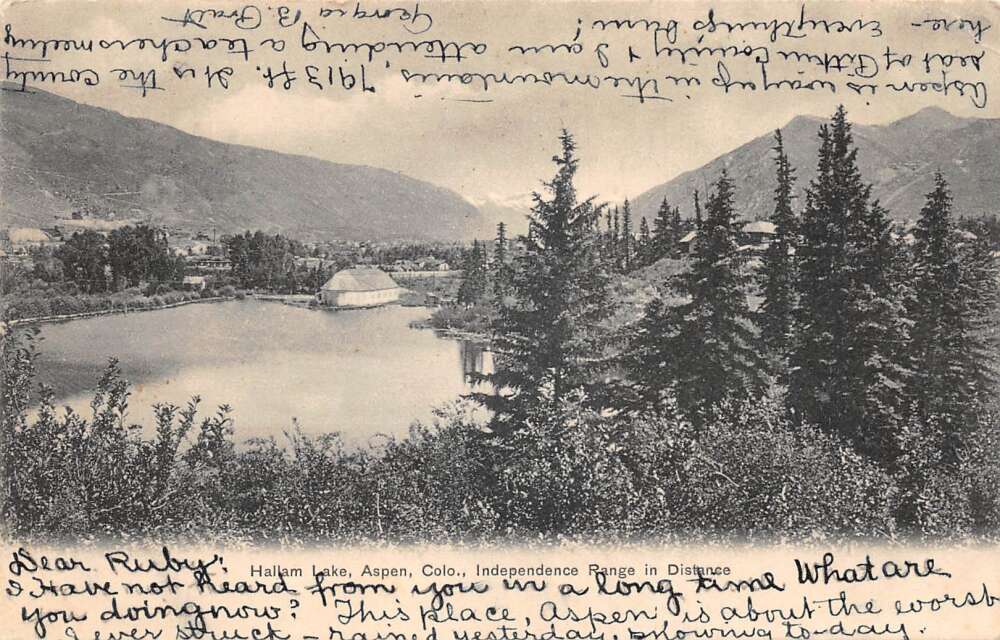 Hallam Lake, Aspen, Colo., Independence Range in Distance
Dear Ruby:
I Have not heard from you in a long time What are
you doing now? This place, Aspen, is about the worst
I ever struck - rained yesterday, snowing to-day.
Aspen is way up in the mountains 7913 ft. It is the county
seat of Pitkin County & I am attending a teachers meeting
here - Everythings bum!
Georgia B. Pratt